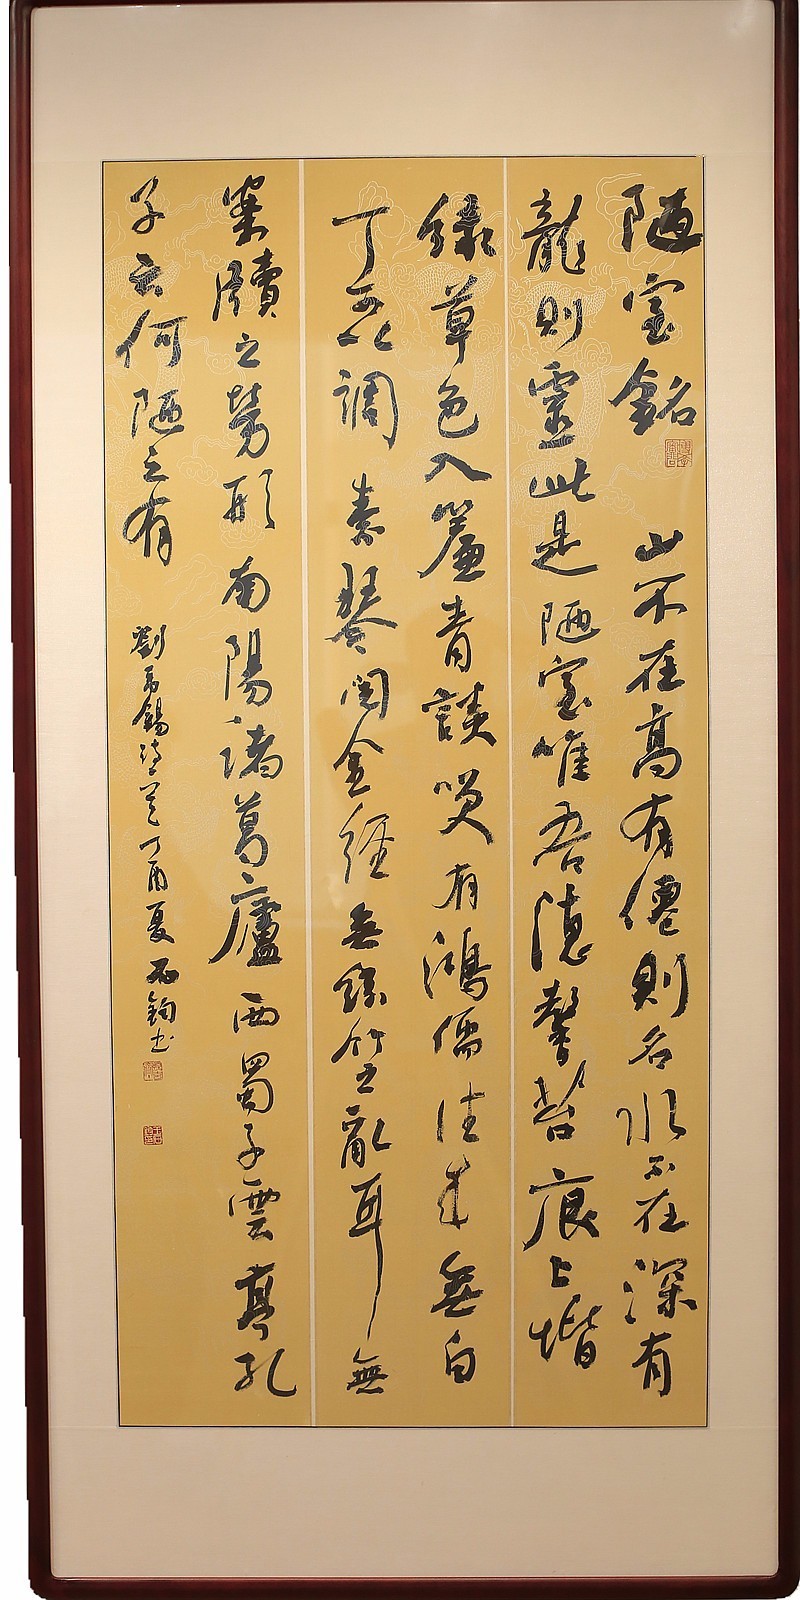 陋室銘 山不在高有僊則名水不在深有
龍則靈此是陋室唯吾德馨苔痕上堦
綠草色入簾青談笑有鴻儒往来無白
丁可以調素琴閱金經無絲竹之亂耳無
案牘之勞形南陽諸葛廬西蜀子雲亭孔
子云何陋之有 劉禹錫 丁酉夏 石鈞书